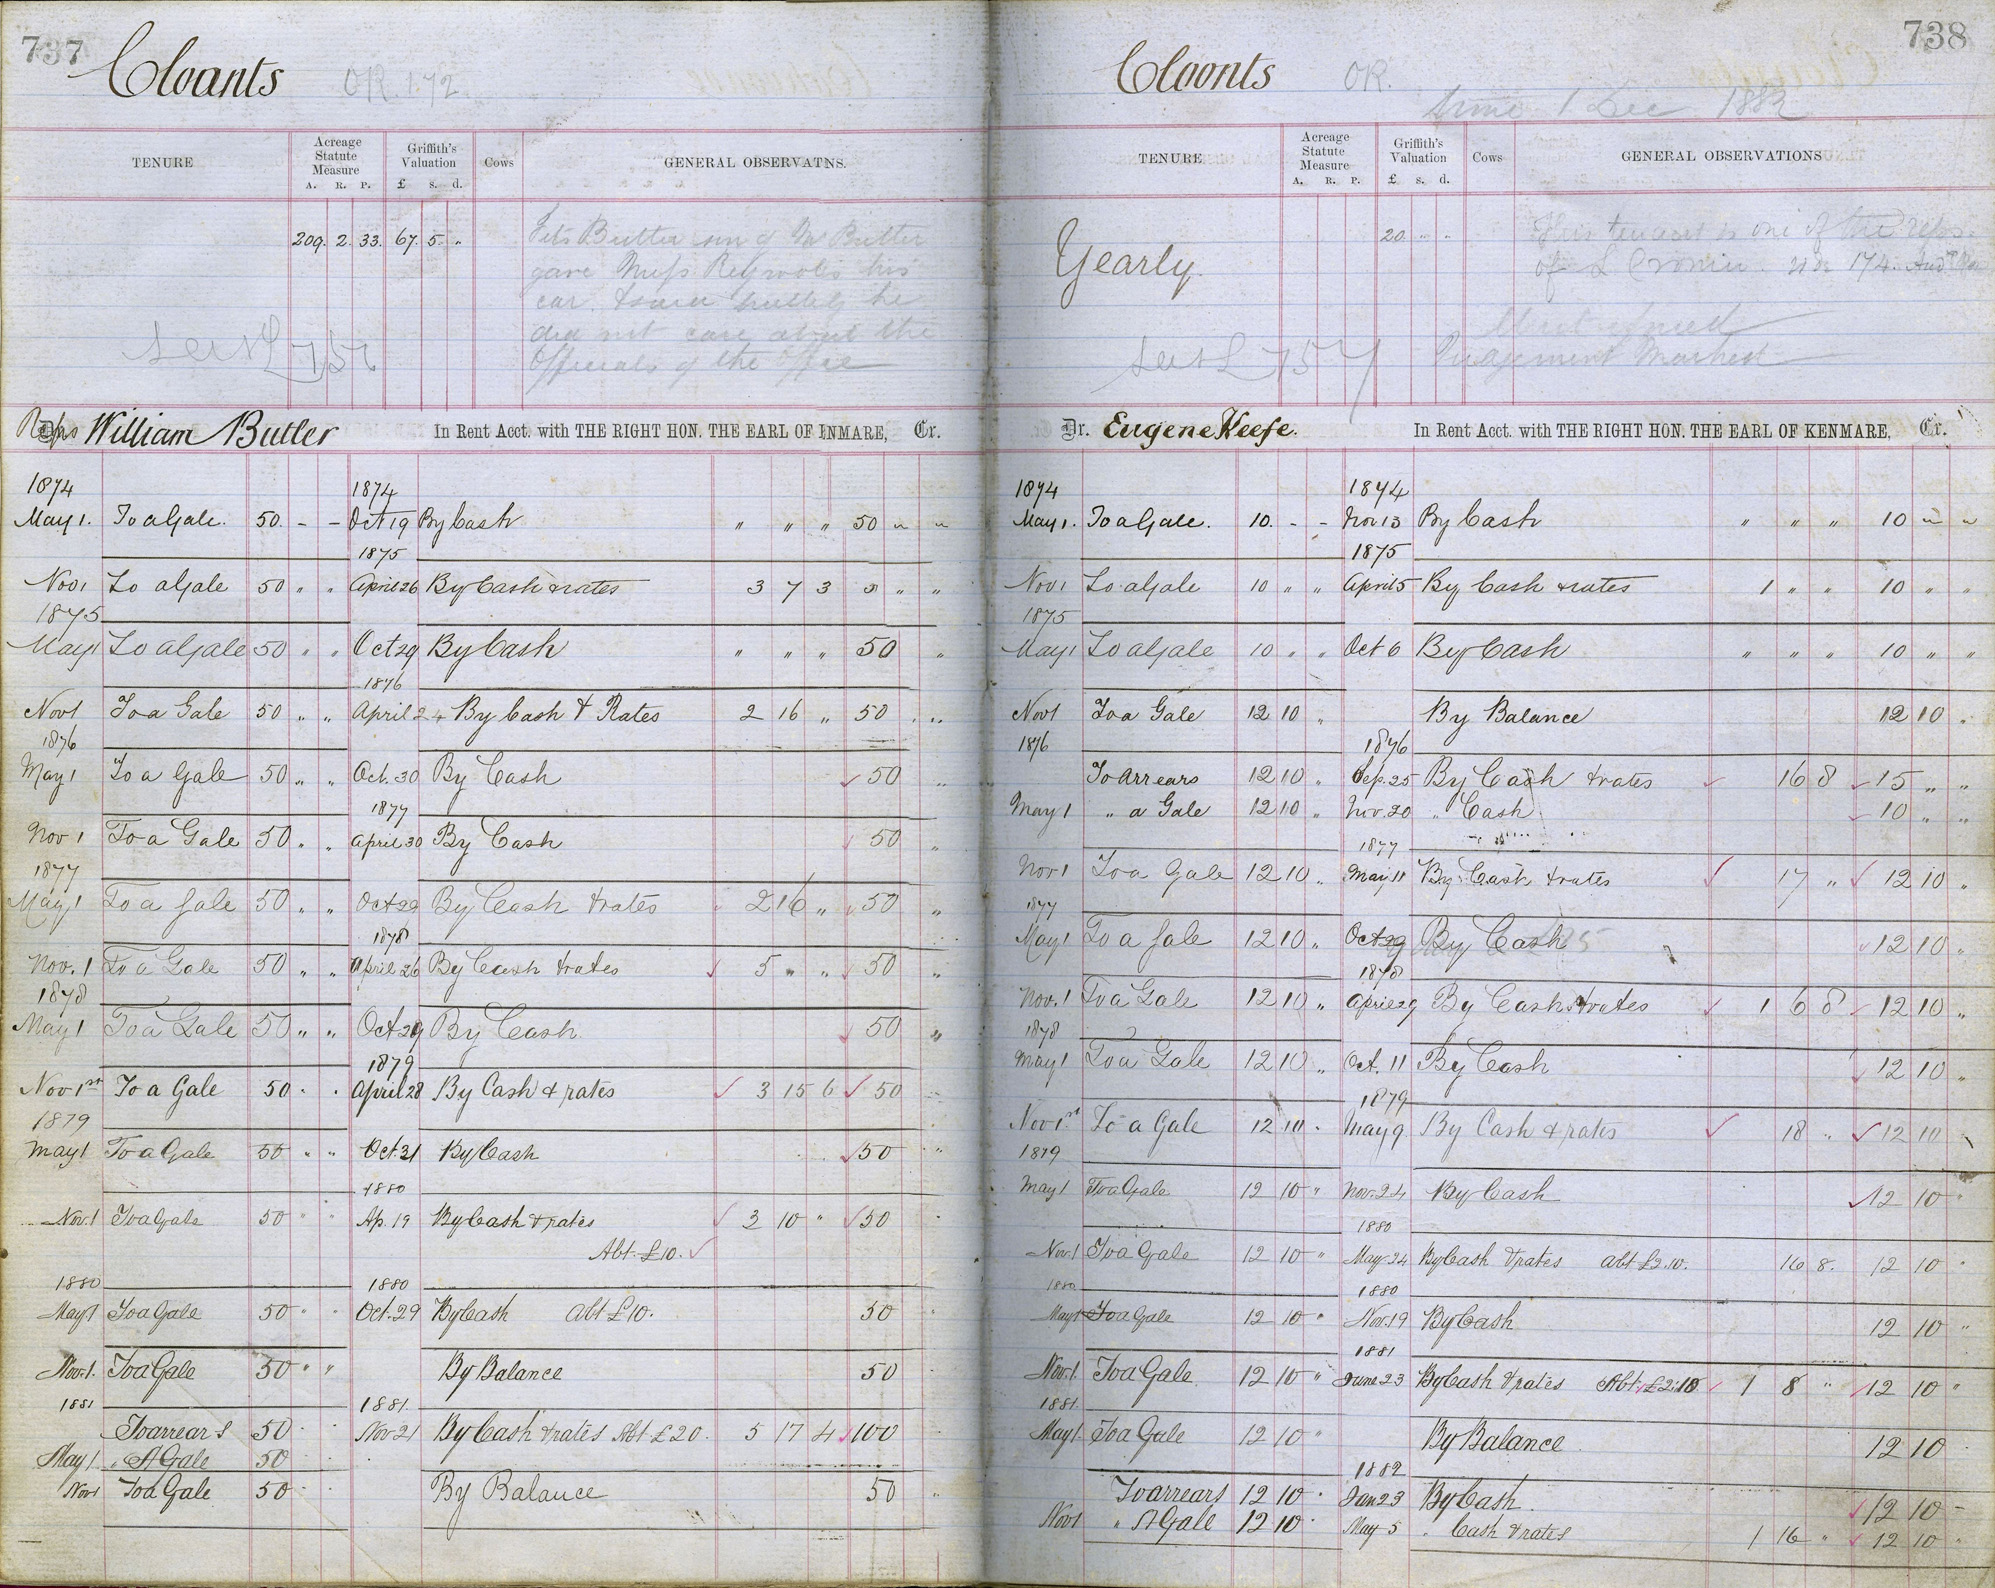 737
Cloonts OR. 1.72
TENURE
Acreage Statute Measure
A. R. P.
Griffith's Valuation
£ s. d.
Cows
GENERAL OBSERVATNS.
209. 2. 33. 67. 5. "
Butler son of Wm Butler
gave Miss his
car he
did not care about the
Officials of the Office
See L 757
Reps William Butler In Rent Acct. with THE RIGHT HON. THE EARL OF INMARE, Cr.
1874 1874
May 1. To a Gale. 50. - - Oct 19 By Cash " " " 50 " "
1875
Nov 1 To a Gale 50 " " April 26 By Cash & rates 3 7 3 " "
1875
May 1 To a Gale 50 " " Oct 29 By Cash " " " 50 "
1876
Nov 1 To a Gale 50 " " April 24 By Cash & Rates 2 16 " 50 "
1876
May 1 To a Gale 50 " " Oct. 30 By Cash 50 "
1877
Nov 1 To a Gale 50 " " April 30 By Cash 50 "
1877
May 1 To a Gale 50 " " Oct 29 By Cash & rates 2 16 " 50 "
1878
Nov. 1 To a Gale 50 " " April 26 By Cash & rates 5 " " 50 "
1878
May 1 To a Gale 50 " " Oct 29 By Cash 50 "
1879
Nov 1st To a Gale 50 " " April 28 By Cash & rates 3 15 6 50
1879
May 1 To a Gale 50 " " Oct. 21 By Cash 50 "
1880
Nov. 1 To a Gale 50 " " Ap. 19 By Cash & rates 3 10 " 50
Abt. £10.
1880 1880
May 1 To a Gale 50 " " Oct. 29 By Cash Abt £10. 50
Nov. 1. To a Gale 50 " " By Balance 50
1881 1881.
To arrears 50 Nov 21 By Cash & rates Abt £20. 5 17 4 100
May 1. " A Gale 50
Nov 1 To a Gale 50 By Balance 50 "
738
Cloonts OR.
1 Dec 1882
TENURE
Acreage Statute Measure
A. R. P.
Griffith's Valuation
£ s. d.
Cows
GENERAL OBSERVATIONS
Yearly. 20. " "
This tenant is one of the reps.
of L Cronin. 174.
Judgement Marked
See L 757
Dr. Eugene Keefe. In Rent Acct. with THE RIGHT HON. THE EARL OF KENMARE, Cr.
1874 1874
May 1. To a Gale. 10. - - Nov 13 By Cash " " " 10 " "
1875
Nov 1 To a Gale 10 " " April 5 By Cash & rates 1 " " 10 " "
1875
May 1 To a Gale 10 " " Oct 6 By Cash " " " 10 " "
Nov 1 To a Gale 12 10 " By Balance 12 10 "
1876 1876
To Arrears 12 10 " Sep. 25 By Cash & rates 16 8 15 " "
May 1 " a Gale 12 10 " Nov. 20 " Cash 10 " "
1877
Nov 1 To a Gale 12 10 " May 11 By Cash & rates 17 " 12 10 "
1877
May 1 To a Gale 12 10 " Oct. 29 By Cash 12 10 "
1878
Nov. 1 To a Gale 12 10 " April 29 By Cash & rates 1 6 8 12 10 "
1878
May 1 To a Gale 12 10 " Oct. 11 By Cash 12 10 "
1879
Nov 1st To a Gale 12 10 " May 9 By Cash & rates 18 " 12 10
1879
May 1 To a Gale 12 10 " Nov. 24 By Cash 12 10 "
1880
Nov. 1 To a Gale 12 10 " May 24 By Cash & rates abt £2.10. 16 8. 12 10 "
1880 1880
May 1 To a Gale 12 10 " Nov. 19 By Cash 12 10 "
1881
Nov. 1. To a Gale 12 10 " June 23 By Cash & rates Abt. £2.10 1 8 " 12 10 "
1881.
May 1. To a Gale 12 10 " By Balance 12 10
1882
To arrears 12 10 " Jan 23 By Cash. 12 10 -
Nov 1 " A Gale 12 10 " May 5 " Cash & rates 1 16 " 12 10 "